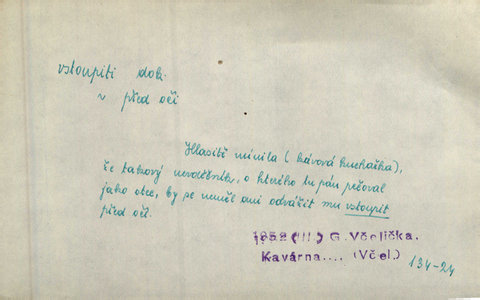 vstoupiti dok.
v před oči
Hlasitě mínila (kávová kuchařka),
že takový nevděčník, o kterého tu pán pečoval
jako otec, by se neměl ani odvážit mu vstoupit
před oči.
1952 (II.) G. Včelička,
Kavárna.... (Včel.) 134-24